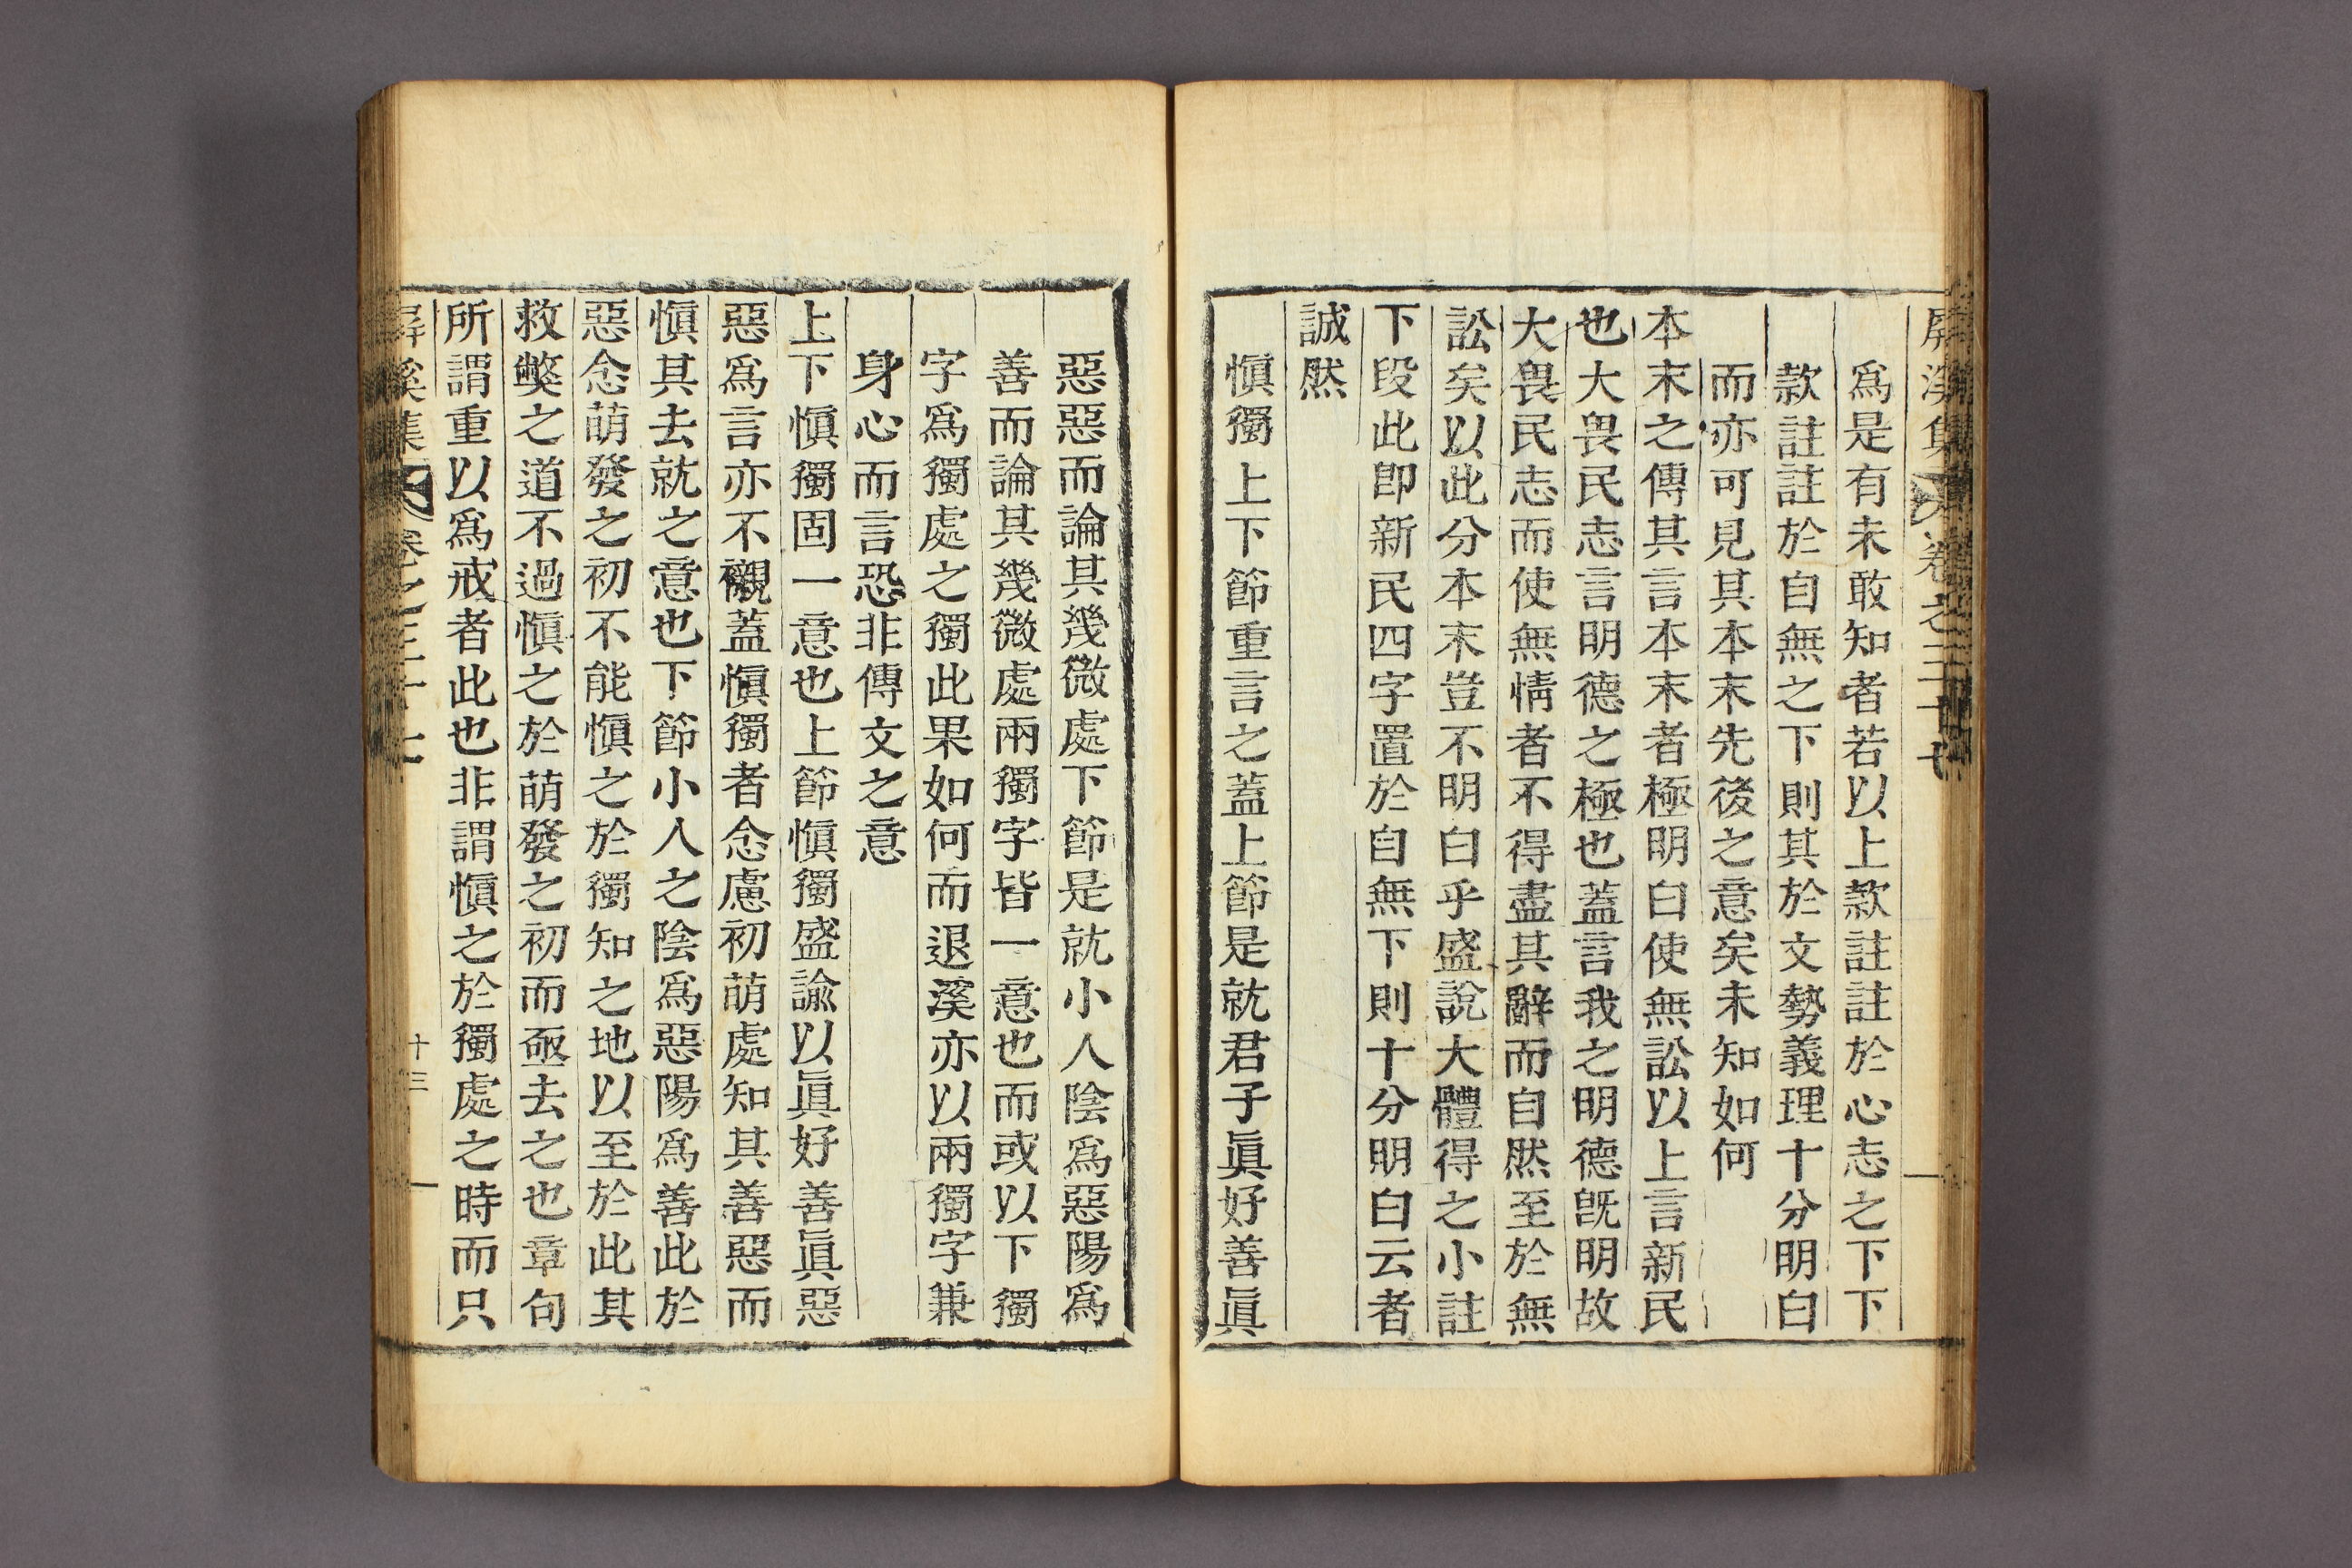 屛溪集 卷之三十七
爲是有未敢知者若以上款註註於心志之下下
款註註於自無之下則其於文勢義理十分明白
而亦可見其本末先後之意矣未知如何
本末之傳其言本末者極明白使無訟以上言新民
也大畏民志言明德之極也蓋言我之明德旣明故
大畏民志而使無情者不得盡其辭而自然至於無
訟矣以此分本末豈不明白乎盛說大體得之小註
下段此卽新民四字置於自無下則十分明白云者
誠然
愼獨上下節重言之蓋上節是就君子眞好善眞
惡惡而論其幾微處下節是就小人陰爲惡陽爲
善而論其幾微處兩獨字皆一意也而或以下獨
字爲獨處之獨此果如何而退溪亦以兩獨字兼
身心而言恐非傳文之意
上下愼獨固一意也上節愼獨盛諭以眞好善眞惡
惡爲言亦不襯蓋愼獨者念慮初萌處知其善惡而
愼其去就之意也下節小人之陰爲惡陽爲善此於
惡念萌發之初不能愼之於獨知之地以至於此其
救弊之道不過愼之於萌發之初而亟去之也章句
所謂重以爲戒者此也非謂愼之於獨處之時而只
屛溪集 卷之三十七 十三